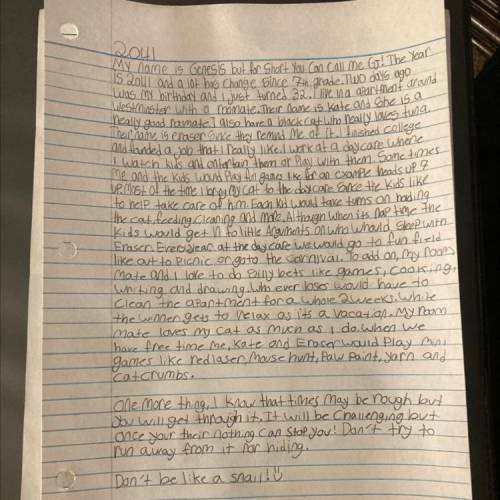 2041
My name is Genesis but for short you can call me G! The year
is 2041 and a lot has change since 7th grade. Two days ago
was my birthday and i just turned 32. I live in a apartment around
Westminster with a roomate. Their name is Kate and She is a
really good roomate. I also have a black cat who really loves tuna.
Their name is eraser since they remind me of it. I finished college
and landed a job that I really like. I work at a daycare where
I watch kids and entertain them or Play with them. Some times
me and the kids would Play fun game like for an example heads up 7
up. Most of the time I bring my cat to the daycare since the kids like
to help take care of him. Each kid would take turns on holding
the cat, feeding, cleaning and more. Although when its nap time the
kids would get in to little Arguments on who whould sleep with
Eraser. Every year at the day care we would go to fun field
like out to Picnic or go to the carnival. To add on, my room
mate and I love to do silly bets like games, cooking,
writing and drawing. Who ever loses would have to
clean the apartment for a whole 2 weeks. While
the winner gets to relax as its a vacation. My room
mate loves my cat as much as I do. When we
have free time me, Kate and Eraser would Play mini
games like red laser, Mouse hunt, Paw Paint, yarn and
cat crumbs.
One more thing, I know that times may be rough but
you will get through it. It will be challenging but
once your their nothing can stop you! Don't try to
run away from it nor hiding.
Don't be like a snail!